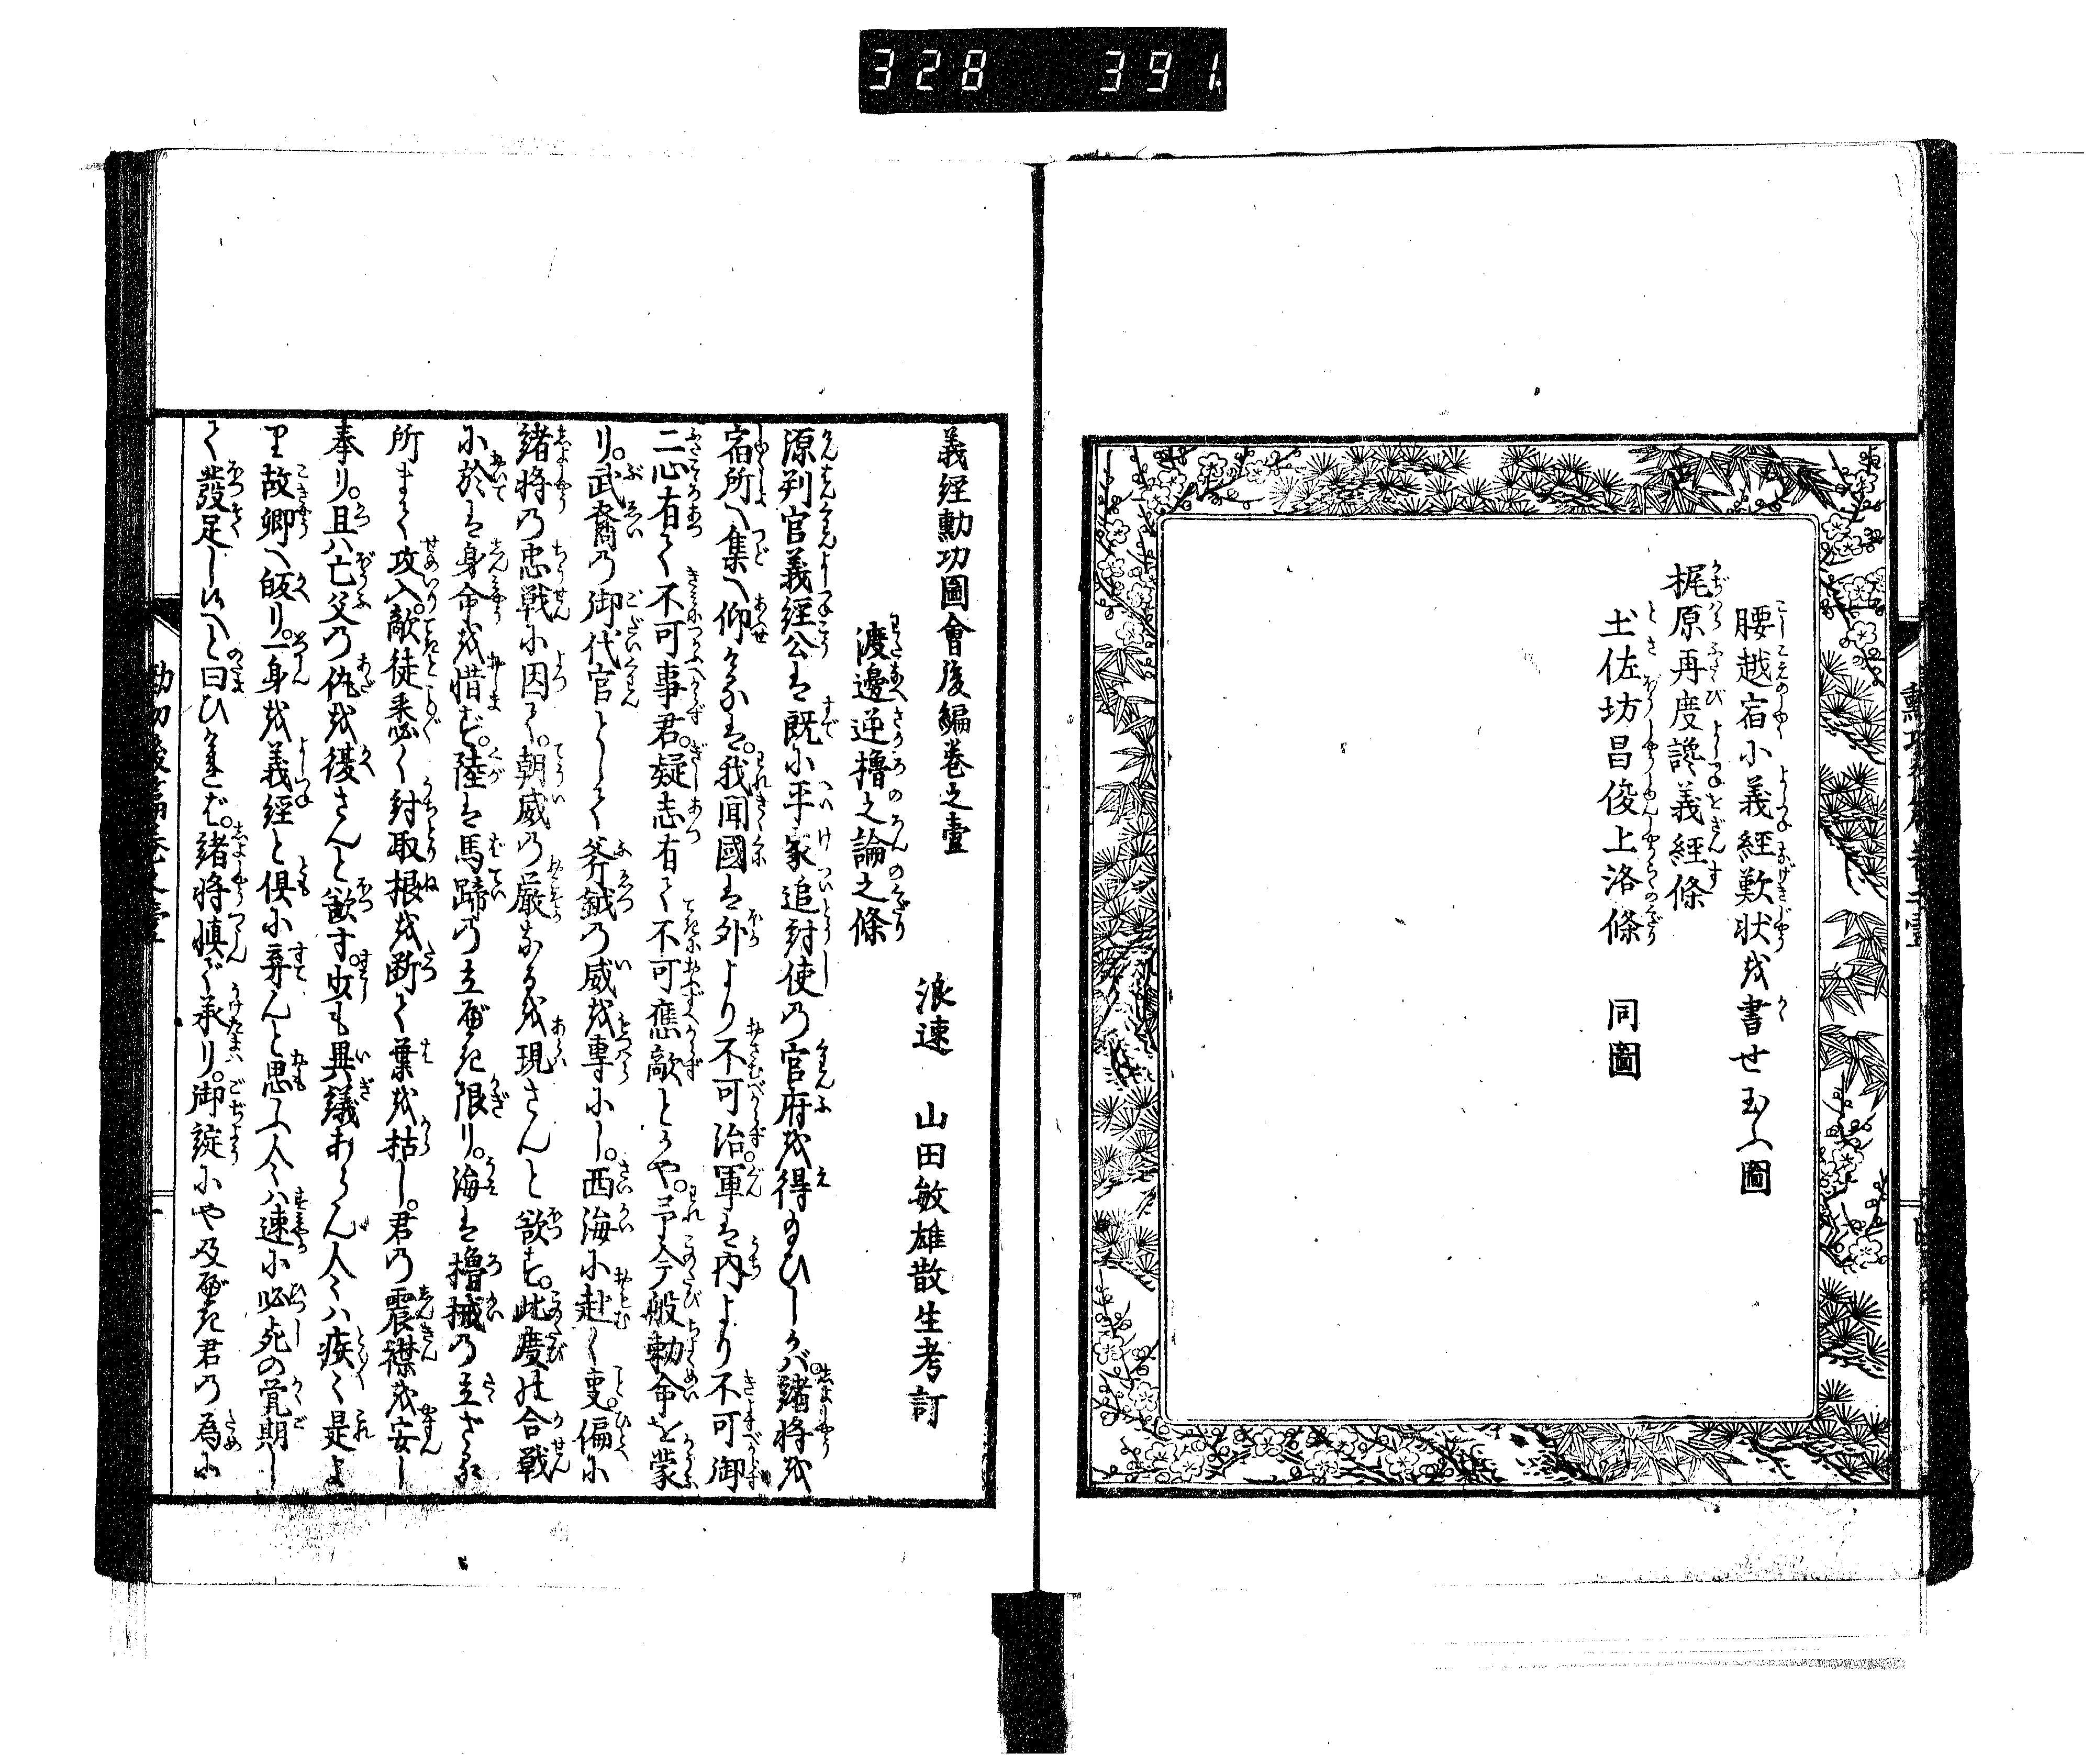 328 391
腰越宿小義經歎状越書せ玉ふ圖
梶原再度讒義經條
土佐坊昌俊上洛條 同圖
義経勳功圖會後編巻之壹
浪速 山田敏雄散生考訂
渡邊逆櫓之論之條
源判官義經公は既に平家追討使の官府を得玉ひしかバ。諸将を
宿所へ集へ仰けるは。我聞國は外より不可治。軍は内より不可御
二心有て不可事君。疑志有て不可應敵とかや。予今般勅命を蒙
り。武裔の御代官として斧鉞の威を専にし。西海に赴く叓。偏に
諸将の忠戦に因て。朝威の厳なるを現さんと欲す。此度の合戦
に於は身命を惜まず。陸は馬蹄の立べき限り。海は櫓械の立ざる
所まで攻入。敵徒悉く討取根を断て葉を枯し。君の震襟を安し
奉り。且ハ亡父の仇を復さんと欲す。少も異議あらん人々ハ疾々是よ
り故郷へ皈り。一身を義經と倶に弃んと思ふ人々ハ速に必死の覚期し
て發足し候へと曰ひけれバ。諸将慎で承り。御諚にや及べき君の為に